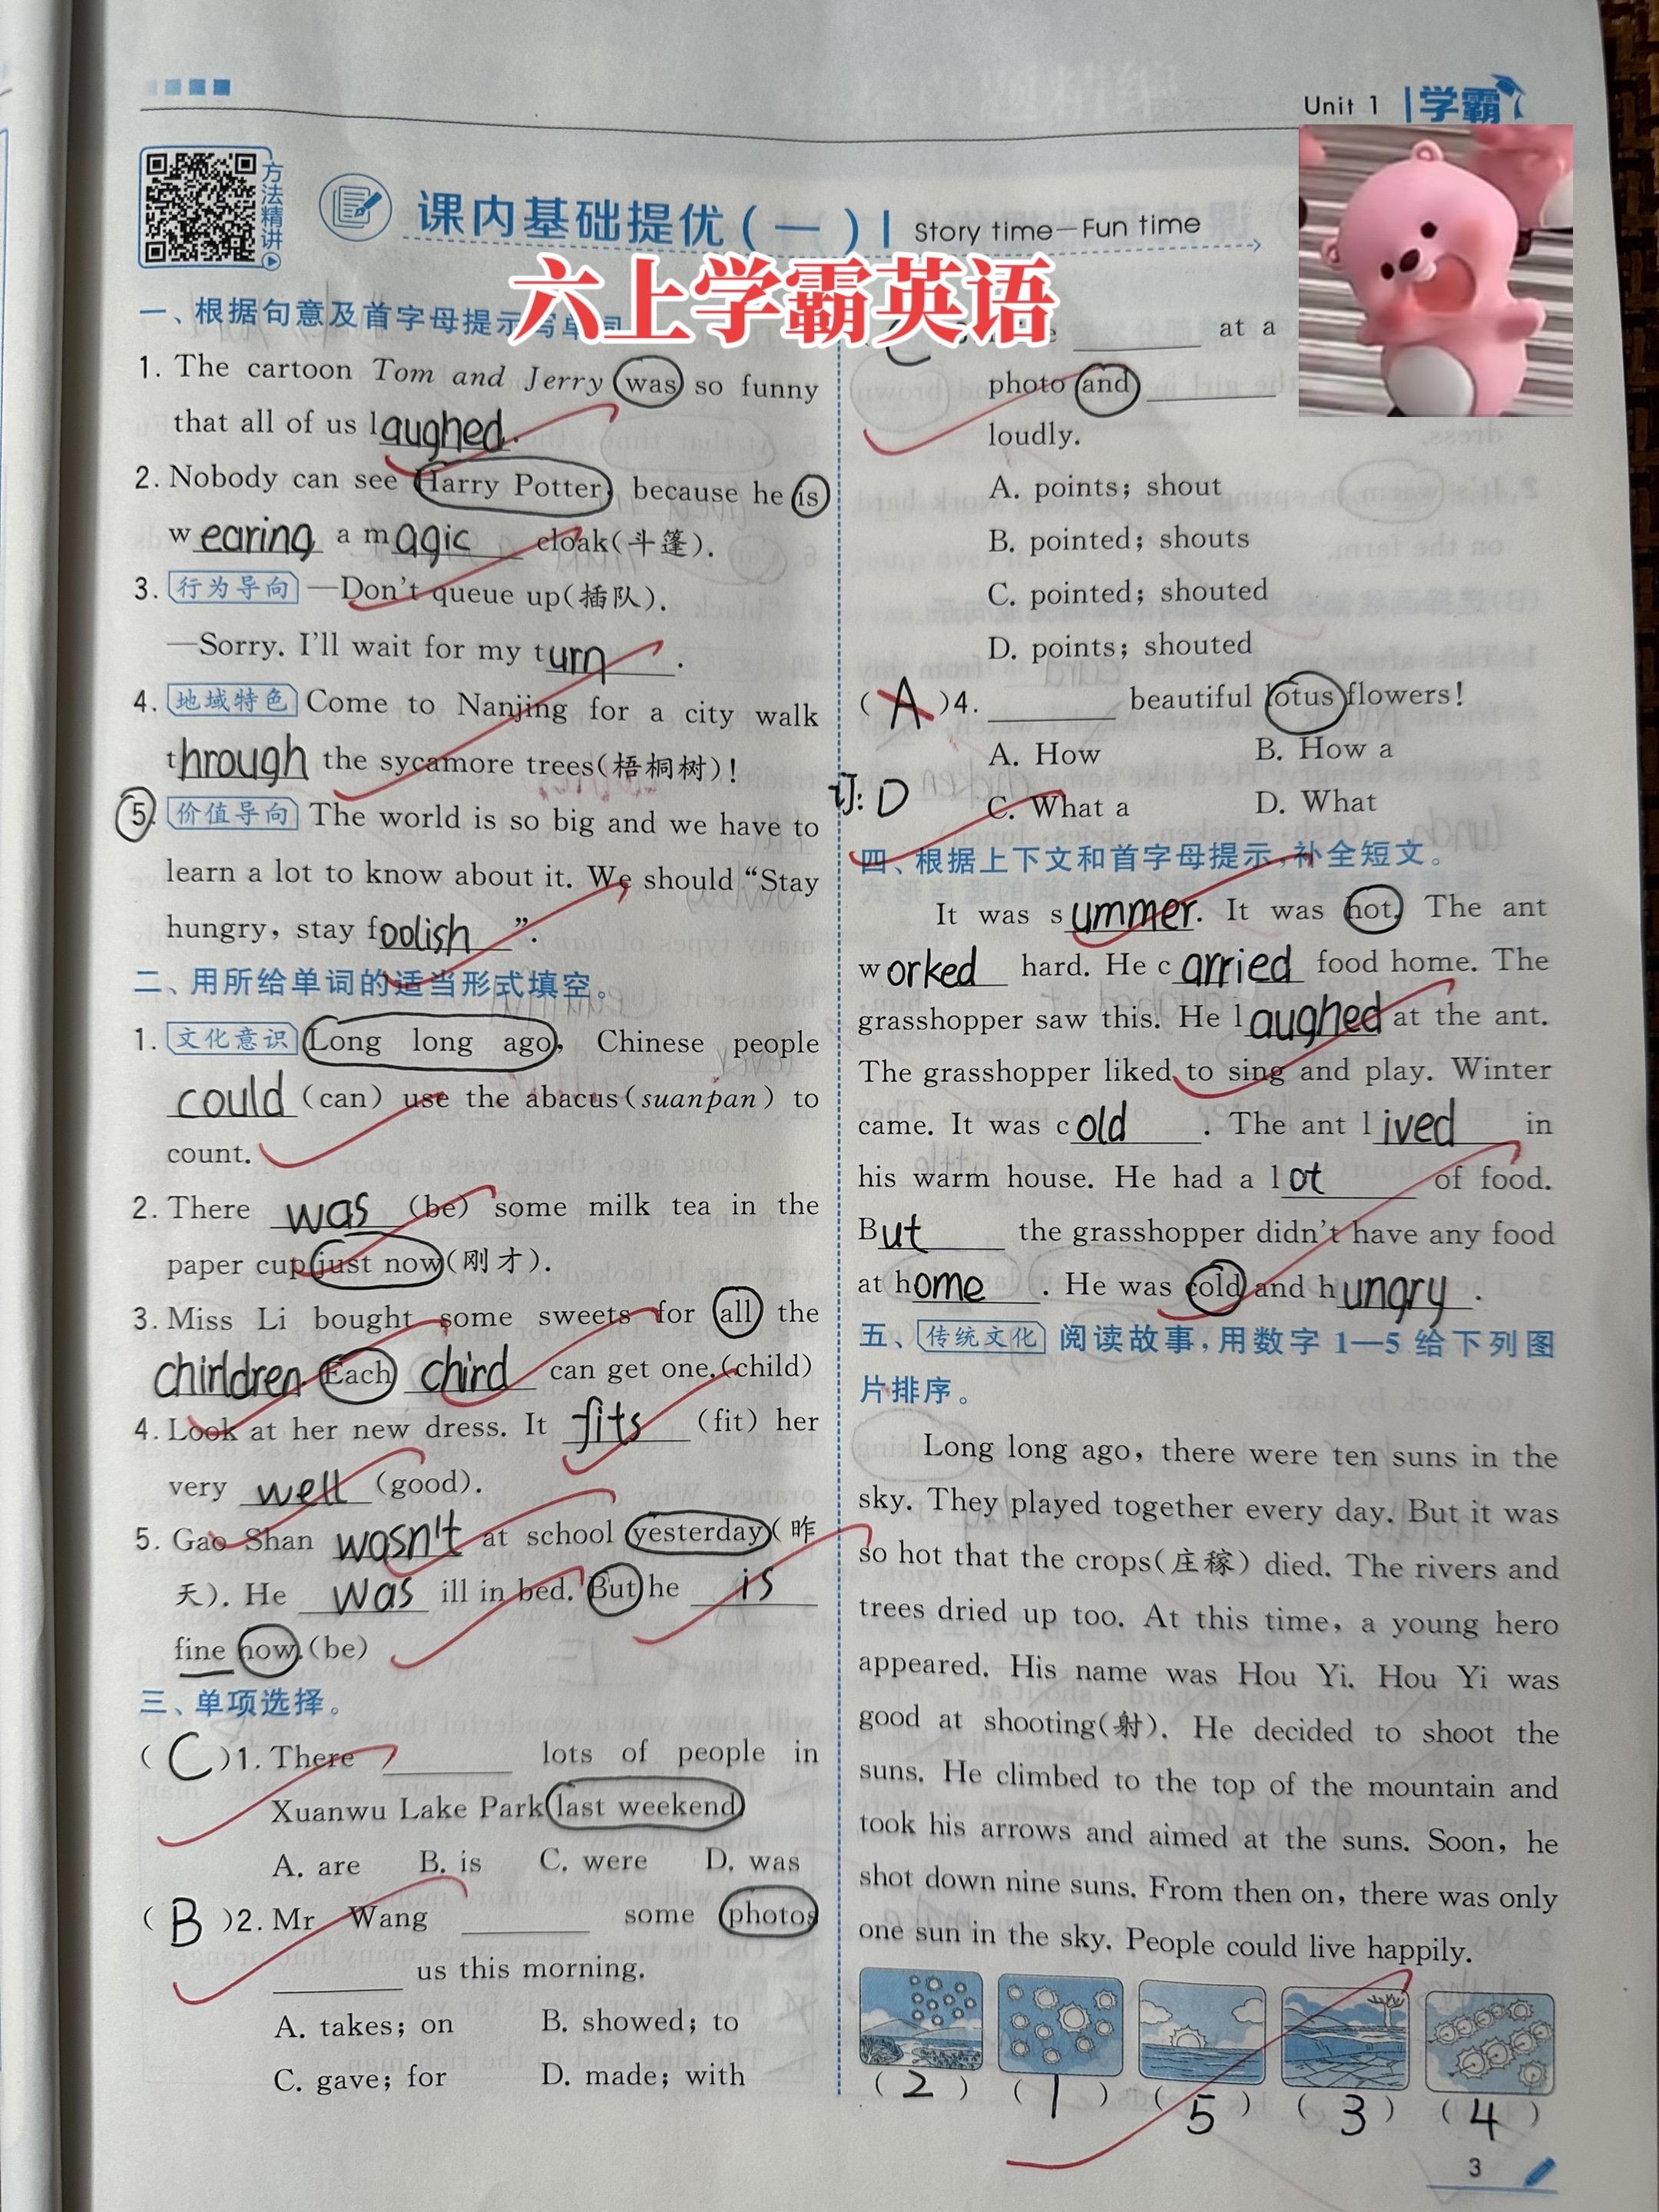 Unit 1 学霸
方法精讲
课内基础提优(一) Story time—Fun time
六上学霸英语
一、根据句意及首字母提示写单词
1. The cartoon Tom and Jerry was so funny
that all of us laughed.
2. Nobody can see Harry Potter, because he is
wearing a magic cloak(斗篷).
3. 行为导向 —Don't queue up(插队).
—Sorry. I'll wait for my turn.
4. 地域特色 Come to Nanjing for a city walk
through the sycamore trees(梧桐树)!
5. 价值导向 The world is so big and we have to
learn a lot to know about it. We should “Stay
hungry, stay foolish”.
二、用所给单词的适当形式填空。
1. 文化意识 Long long ago, Chinese people
could (can) use the abacus(suanpan) to
count.
2. There was (be) some milk tea in the
paper cup just now(刚才).
3. Miss Li bought some sweets for all the
chirldren. Each chird can get one.(child)
4. Look at her new dress. It fits (fit) her
very well (good).
5. Gao Shan wasn't at school yesterday(昨
天). He was ill in bed. But he is
fine now.(be)
三、单项选择。
(C)1. There ______ lots of people in
Xuanwu Lake Park last weekend.
A. are B. is C. were D. was
(B)2. Mr Wang ______ some photos
______ us this morning.
A. takes; on B. showed; to
C. gave; for D. made; with
C ______ at a
photo and ______
loudly.
A. points; shout
B. pointed; shouts
C. pointed; shouted
D. points; shouted
(A)4. ______ beautiful lotus flowers!
A. How B. How a
订: D C. What a D. What
四、根据上下文和首字母提示,补全短文。
It was summer. It was hot. The ant
worked hard. He carried food home. The
grasshopper saw this. He laughed at the ant.
The grasshopper liked to sing and play. Winter
came. It was cold. The ant lived in
his warm house. He had a lot of food.
But the grasshopper didn't have any food
at home. He was cold and hungry.
五、传统文化 阅读故事,用数字 1—5 给下列图
片排序。
Long long ago, there were ten suns in the
sky. They played together every day. But it was
so hot that the crops(庄稼) died. The rivers and
trees dried up too. At this time, a young hero
appeared. His name was Hou Yi. Hou Yi was
good at shooting(射). He decided to shoot the
suns. He climbed to the top of the mountain and
took his arrows and aimed at the suns. Soon, he
shot down nine suns. From then on, there was only
one sun in the sky. People could live happily.
(2) (1) (5) (3) (4)
3